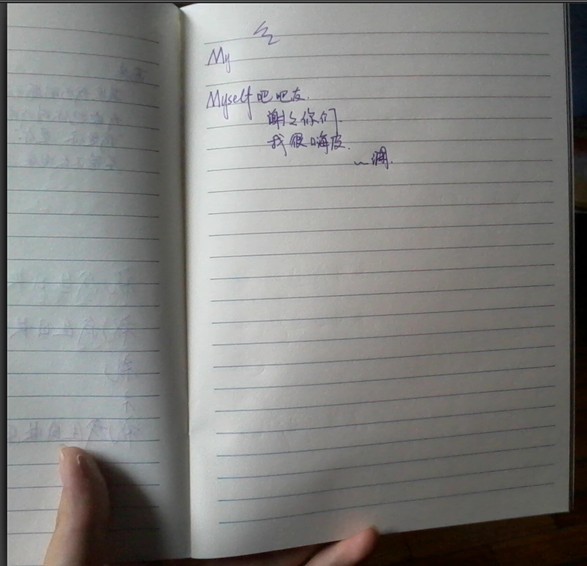 My
Myself 吧吧友.
谢谢你们
我很嗨皮.
~澜.